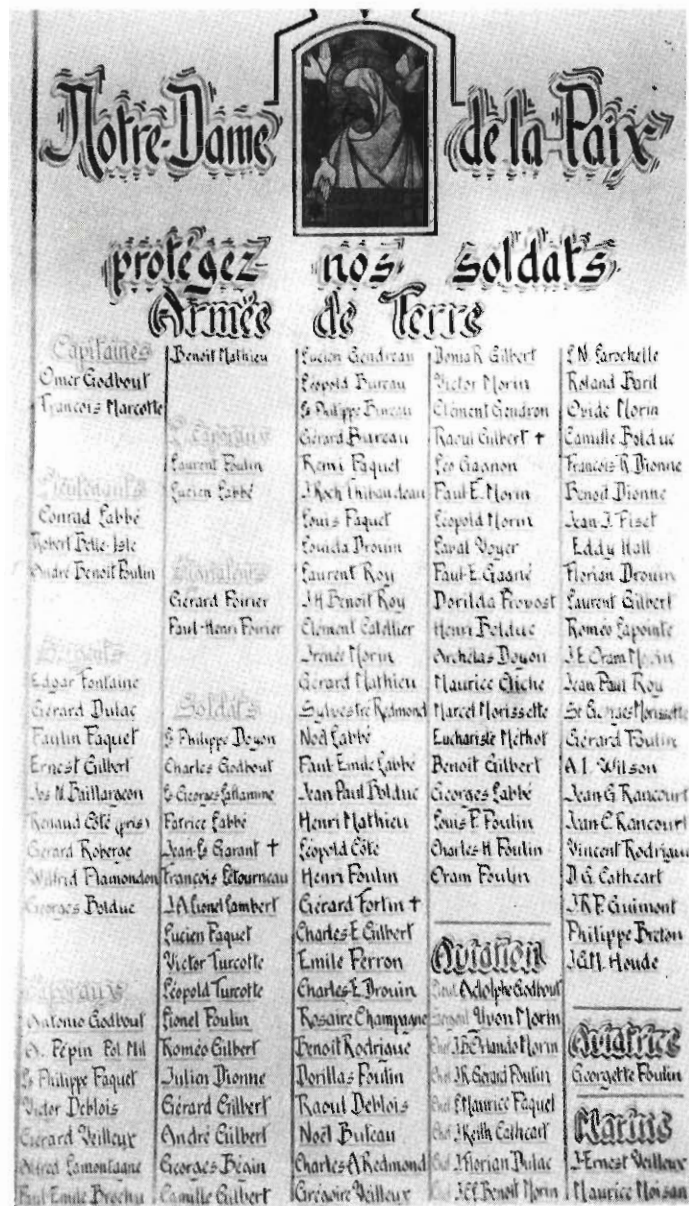 Notre-Dame de la Paix
protégez nos soldats
Armée de Terre
Capitaines
Omer Godbout
François Marcotte
Lieutenants
Conrad Labbé
Robert Belle-Isle
André Benoit Poulin
Sergents
Edgar Fontaine
Gérard Dulac
Paulin Paquet
Ernest Gilbert
Jos M. Baillargeon
Renaud Côté (pris)
Gérard Roberge
Wilfrid Plamondon
Georges Bolduc
Caporaux
Antonio Godbout
A. Pépin Pol. Mil
Ls Philippe Paquet
Victor Deblois
Gérard Veilleux
Alfred Lamontagne
Paul-Emile Brochu
Benoit Mathieu
L. Caporaux
Laurent Poulin
Lucien Labbé
Gérard Poirier
Paul-Henri Poirier
Soldats
Ls Philippe Doyon
Charles Godbout
Ls Georges Laflamme
Patrice Labbé
Jean-Ls Garant †
François Létourneau
J.A. Lionel Lambert
Lucien Paquet
Victor Turcotte
Léopold Turcotte
Lionel Poulin
Roméo Gilbert
Julien Dionne
Gérard Gilbert
André Gilbert
Georges Bégin
Camille Gilbert
Lucien Gendreau
Léopold Bureau
Ls Philippe Bureau
Gérard Bureau
Remi Paquet
J. Roch Thibaudeau
Louis Paquet
Louida Drouin
Laurent Roy
J.H. Benoit Roy
Clément Catellier
Irenée Morin
Gérard Mathieu
Sylvestre Redmond
Noël Labbé
Paul-Emile Labbé
Jean Paul Bolduc
Henri Mathieu
Léopold Côté
Henri Poulin
Gérard Fortin †
Charles-E. Gilbert
Emile Perron
Charles-E. Drouin
Rosaire Champagne
Benoit Rodrigue
Dorillas Poulin
Raoul Deblois
Noël Buteau
Charles-A. Redmond
Grégoire Veilleux
Donia R. Gilbert
Victor Morin
Clément Gendron
Raoul Gilbert †
Léo Gagnon
Paul E. Morin
Léopold Morin
Laval Voyer
Paul-E. Gagné
Dorilda Provost
Henri Bolduc
Archélas Doyon
Maurice Cliche
Marcel Morissette
Euchariste Méthot
Benoit Gilbert
Georges Labbé
Louis P. Poulin
Charles-H. Poulin
Oram Poulin
Aviation
Adolphe Godbout
Sergent Yvon Morin
J.B. Orlando Morin
J.R. Gérard Poulin
J. Maurice Paquet
J. Keith Cathcart
J. Florian Dulac
Benoit Morin
J.N. Larochelle
Roland Baril
Ovide Morin
Camille Bolduc
François R. Dionne
Benoit Dionne
Jean-J. Fiset
Eddy Hall
Florian Drouin
Laurent Gilbert
Roméo Lapointe
J.E. Oram Morin
Jean Paul Roy
St Georges Morissette
Gérard Poulin
A.L. Wilson
Jean G. Rancourt
Jean-C. Rancourt
Vincent Rodrigue
D.G. Cathcart
J.R.P. Guimont
Philippe Breton
J.G.M. Houde
Aviatrice
Georgette Poulin
Marine
J-Ernest Veilleux
Maurice Moisan